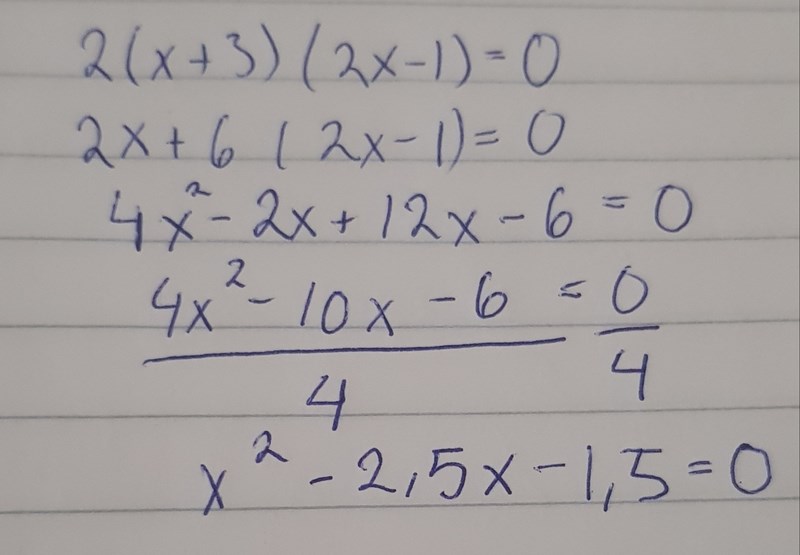 2(x+3)(2x-1)=0
2x+6(2x-1)=0
4x²-2x+12x-6=0
4x²-10x-6=0
4 4
x²-2,5x-1,5=0